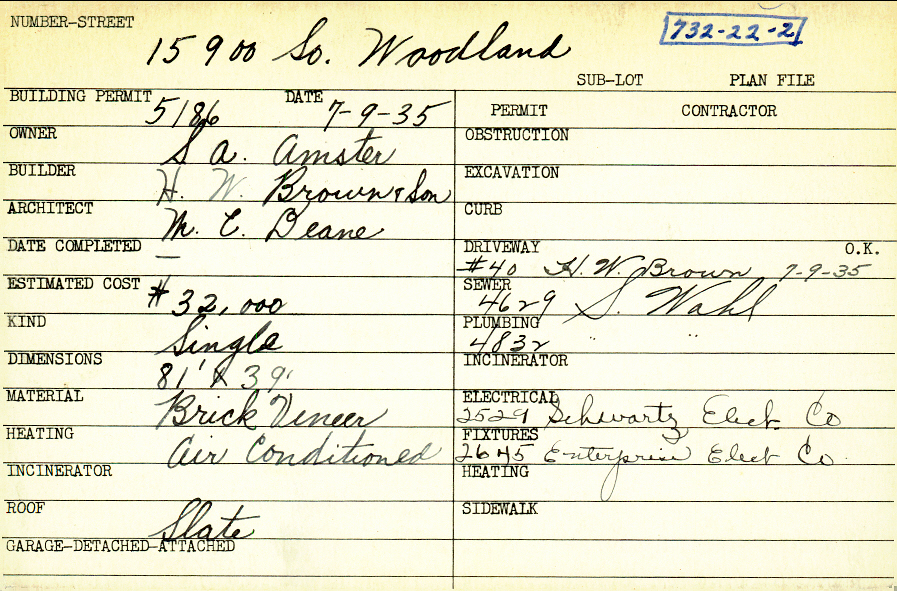 NUMBER-STREET
15900 So. Woodland
732-22-2
SUB-LOT PLAN FILE
BUILDING PERMIT 5186 DATE 7-9-35
PERMIT CONTRACTOR
OWNER S. A. Amster
OBSTRUCTION
BUILDER H. W. Brown & Son
EXCAVATION
ARCHITECT M. E. Deane
CURB
DATE COMPLETED —
DRIVEWAY O.K.
#40 H. W. Brown 7-9-35
ESTIMATED COST #32,000
SEWER 4629 S. Wahl
KIND Single
PLUMBING 4832 " "
DIMENSIONS 81' X 39'
INCINERATOR
MATERIAL Brick Veneer
ELECTRICAL 2529 Schwartz Elect. Co
HEATING Air Conditioned
FIXTURES 2645 Enterprise Elect Co.
INCINERATOR
HEATING
ROOF Slate
SIDEWALK
GARAGE-DETACHED-ATTACHED